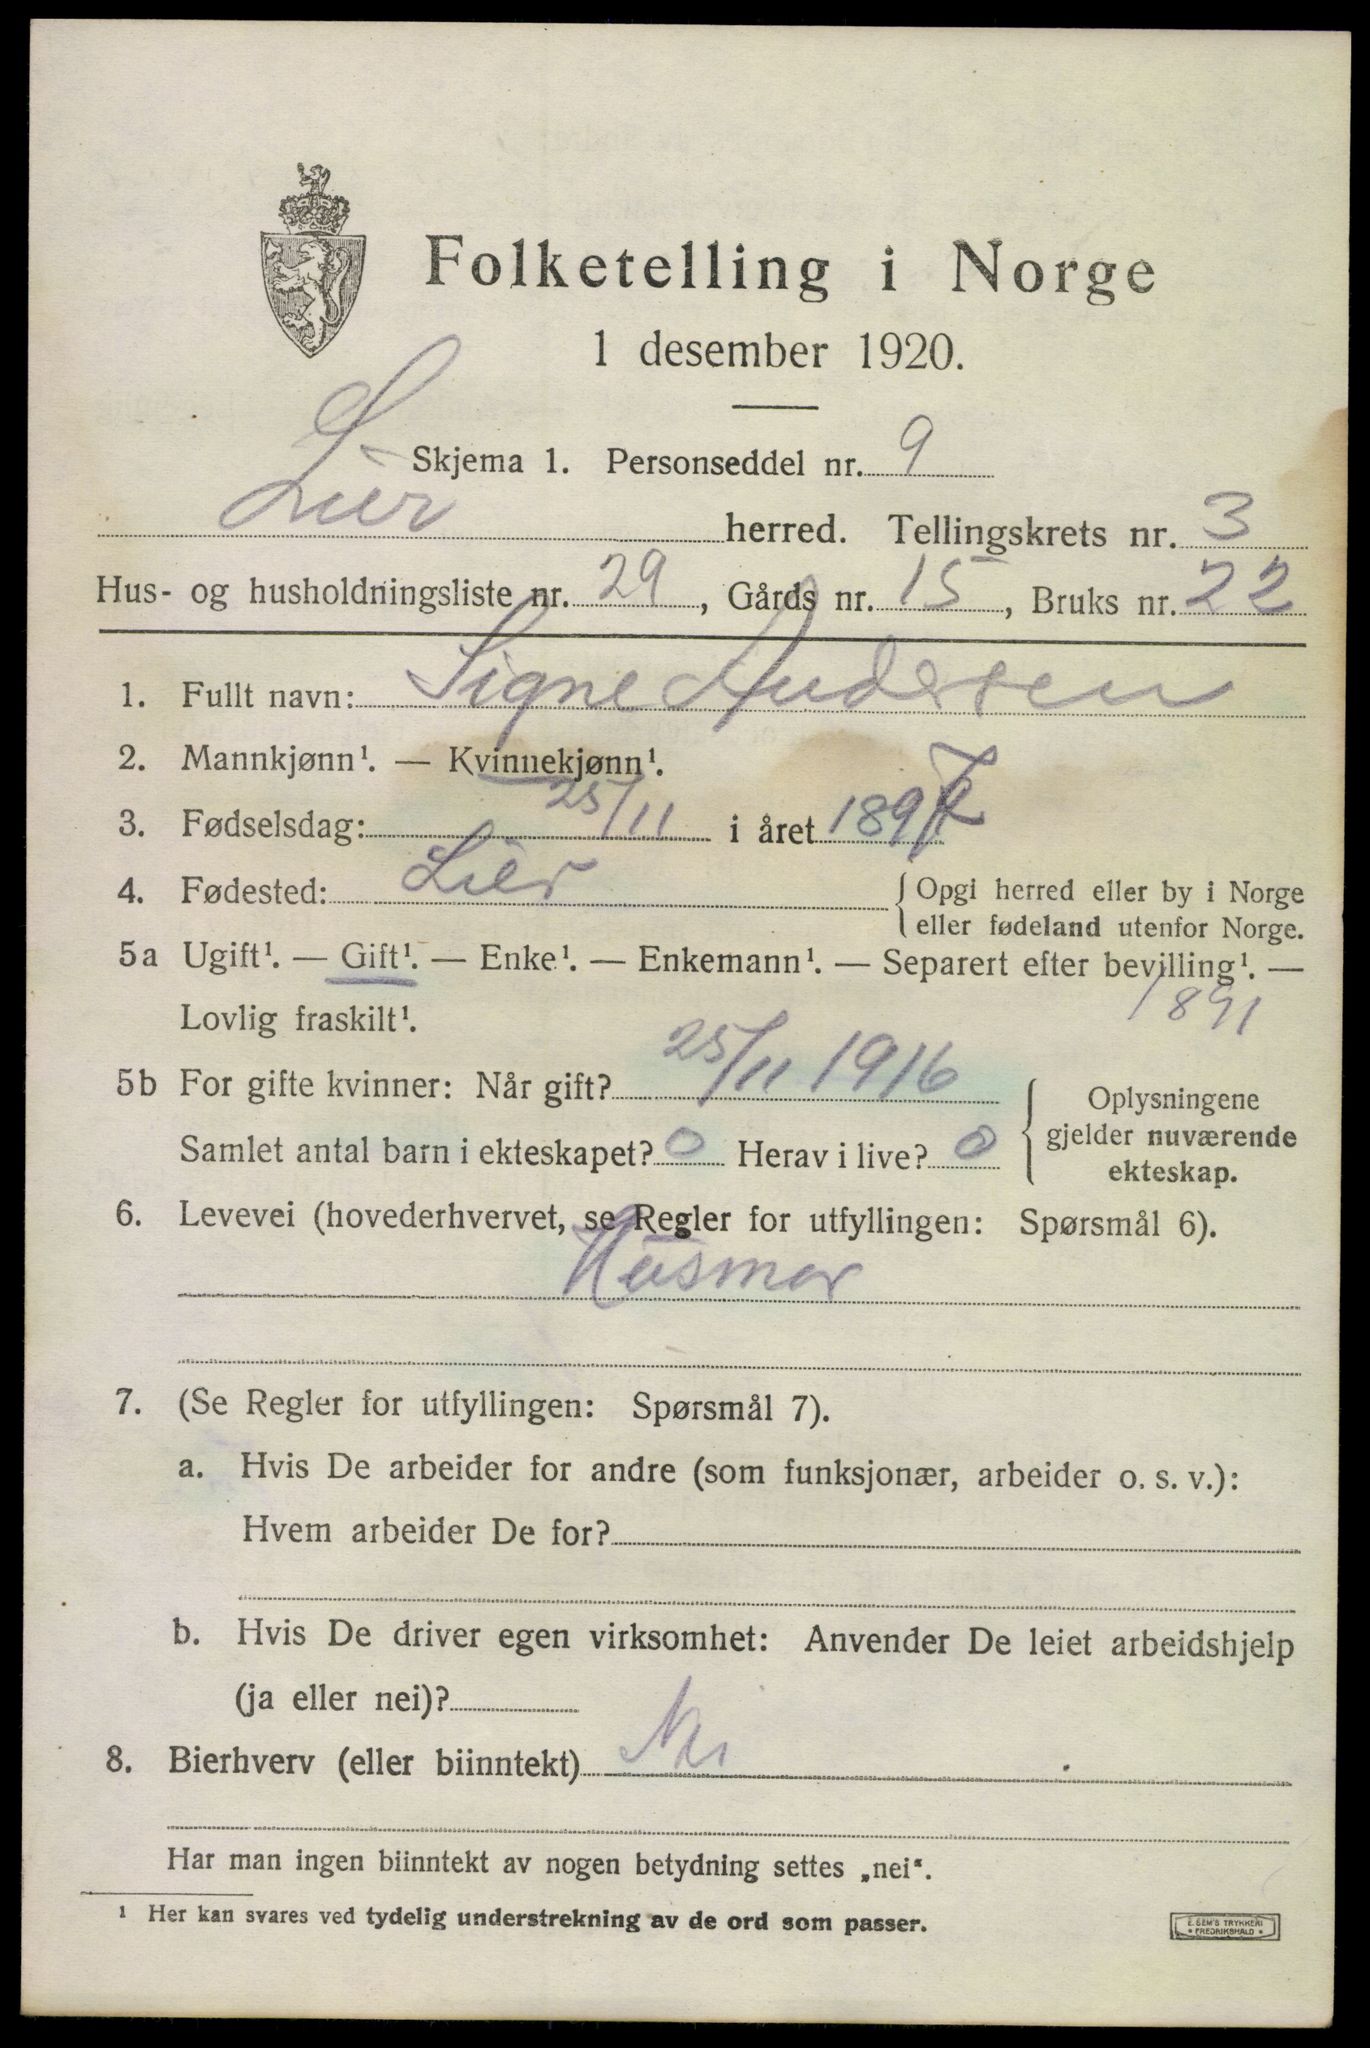 Folketelling i Norge
1 desember 1920.
Skjema 1. Personseddel nr. 9
Lier herred. Tellingskrets nr. 3
Hus- og husholdningsliste nr. 29, Gårds nr. 15, Bruks nr. 22
1. Fullt navn: Signe Andersen
2. Mannkjønn¹. — Kvinnekjønn¹.
3. Fødselsdag: 25/11 i året 1897
4. Fødested: Lier
{ Opgi herred eller by i Norge
eller fødeland utenfor Norge.
5a Ugift¹. — Gift¹. — Enke¹. — Enkemann¹. — Separert efter bevilling¹. —
Lovlig fraskilt¹.
1891
5b For gifte kvinner: Når gift? 25/11 1916
Samlet antal barn i ekteskapet? 0 Herav i live? 0
{ Oplysningene
gjelder nuværende
ekteskap.
6. Levevei (hovederhvervet, se Regler for utfyllingen: Spørsmål 6).
Husmor
7. (Se Regler for utfyllingen: Spørsmål 7).
a. Hvis De arbeider for andre (som funksjonær, arbeider o. s. v.):
Hvem arbeider De for?
b. Hvis De driver egen virksomhet: Anvender De leiet arbeidshjelp
(ja eller nei)?
8. Bierhverv (eller biinntekt) Nei
Har man ingen biinntekt av nogen betydning settes „nei“.
¹ Her kan svares ved tydelig understrekning av de ord som passer.
E. SEM'S TRYKKERI
* FREDRIKSHALD *